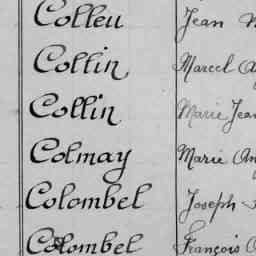 Colleu Jean
Collin Marcel
Collin Marie Jean
Colmay Marie
Colombel Joseph
Colombel François